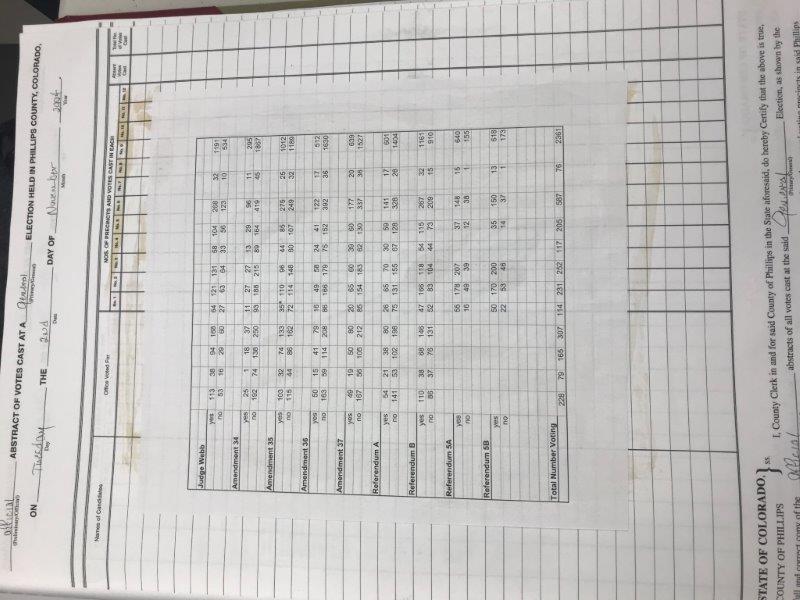 official
(Preliminary/Official)
ABSTRACT OF VOTES CAST AT A General ELECTION HELD IN PHILLIPS COUNTY, COLORADO,
(Primary/General)
ON Tuesday THE 2nd DAY OF November 2004
Day Date Month Year
Names of Candidates
Office Voted For
NOS. OF PRECINCTS AND VOTES CAST IN EACH
No. 1 No. 2 No. 3 No. 4 No. 5 No. 6 No. 7 No. 8 No. 9 No. 10 No. 11 No. 12
Absent Votes Cast
Total No. of Votes Cast
Judge Webb
yes 113 38 94 168 64 121 131 58 104 268 32 1191
no 53 16 29 60 27 63 64 33 56 123 10 534
Amendment 34
yes 25 1 18 37 11 27 27 13 29 96 11 295
no 192 74 138 250 93 188 215 89 164 419 45 1867
Amendment 35
yes 103 32 74 133 35 110 96 44 85 275 25 1012
no 115 44 86 162 72 114 148 60 107 249 32 1189
Amendment 36
yes 50 15 41 79 16 49 58 24 41 122 17 512
no 163 59 114 208 86 166 179 75 152 392 36 1630
Amendment 37
yes 49 19 50 80 20 65 60 39 60 177 20 639
no 167 56 105 212 85 154 183 62 130 337 36 1527
Referendum A
yes 54 21 38 80 26 65 70 30 59 141 17 601
no 141 53 102 198 75 131 155 67 128 328 26 1404
Referendum B
yes 110 38 68 146 47 166 118 54 115 267 32 1161
no 86 37 76 131 52 83 104 44 73 209 15 910
Referendum 5A
yes 55 178 207 37 148 15 640
no 16 49 39 12 38 1 155
Referendum 5B
yes 50 170 200 35 150 13 618
no 22 53 46 14 37 1 173
Total Number Voting 228 79 165 307 114 231 252 117 205 587 76 2361
STATE OF COLORADO, } ss.
COUNTY OF PHILLIPS
I, County Clerk in and for said County of Phillips in the State aforesaid, do hereby Certify that the above is true,
full and correct copy of the official abstracts of all votes cast at the said General Election, as shown by the
(Primary/General)
precincts in said Phillips